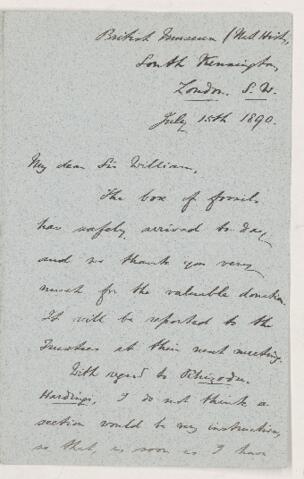 British Museum (Nat. Hist.),
South Kensington,
London. S.W.
July 15th 1890.
My dear Sir William,
The box of fossils
has safely arrived to-day,
and we thank you very
much for the valuable donation.
It will be reported to the
Trustees at their next meeting.
With regard to Rhizodus
Hardingi, I do not think a
section would be very instructive,
so that, as soon as I have